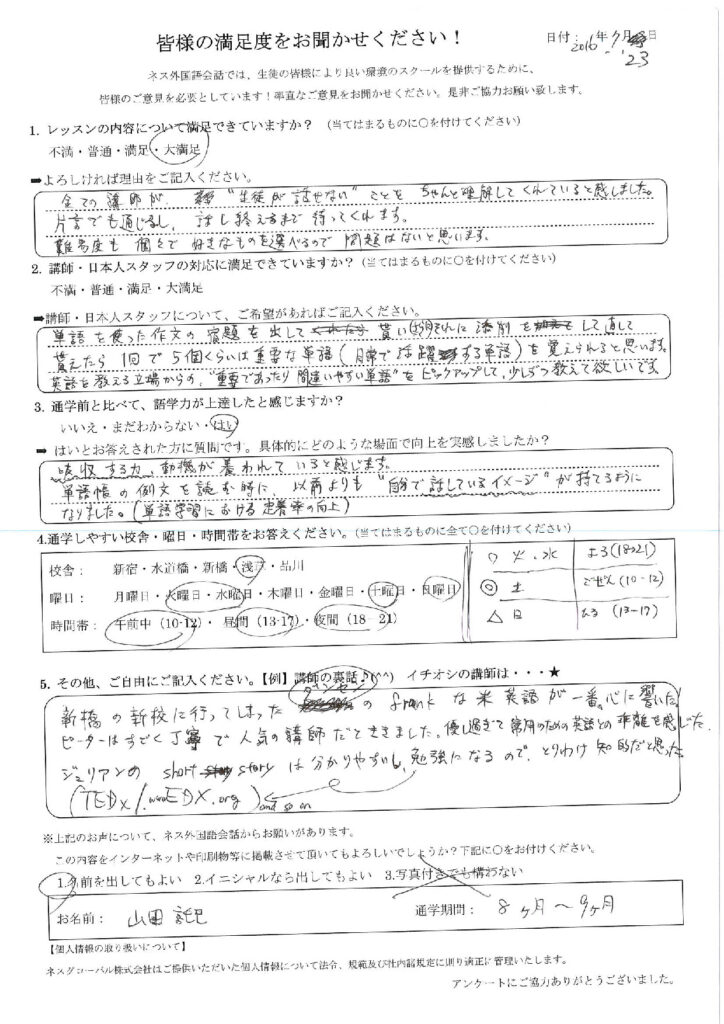 皆様の満足度をお聞かせください！
日付：2016年7月23日
ネス外国語会話では、生徒の皆様により良い環境のスクールを提供するために、
皆様のご意見を必要としています！率直なご意見をお聞かせください。是非ご協力お願い致します。
1. レッスンの内容について満足できていますか？ （当てはまるものに〇を付けてください）
不満・普通・満足・大満足
➡よろしければ理由をご記入ください。
全ての講師が "生徒が話せない" ことを ちゃんと理解してくれていると感じました。
片言でも通じるし、話し終えるまで待ってくれます。
難易度も個々で好きなものを選べるので問題はないと思います。
2. 講師・日本人スタッフの対応に満足できていますか？（当てはまるものに〇を付けてください）
不満・普通・満足・大満足
➡講師・日本人スタッフについて、ご希望があればご記入ください。
単語を使った作文の宿題を出して貰い それに添削をして直して
貰えたら1回で5個くらいは重要な単語（日常で活躍する単語）を覚えられると思います。
英語を教える立場からの、"重要であったり間違いやすい単語"をピックアップして、少しずつ教えて欲しいです。
3. 通学前と比べて、語学力が上達したと感じますか？
いいえ・まだわからない・はい
➡ はいとお答えされた方に質問です。具体的にどのような場面で向上を実感しましたか？
吸収する力、動機が養われていると感じます。
単語帳の例文を読む時に、以前よりも "自分で話しているイメージ" が持てるように
なりました。（単語学習における定着率の向上）
4.通学しやすい校舎・曜日・時間帯をお答えください。（当てはまるものに全て〇を付けてください）
校舎： 新宿・水道橋・新橋・浅草・品川
曜日： 月曜日・火曜日・水曜日・木曜日・金曜日・土曜日・日曜日
時間帯： 午前中（10-12）・ 昼間（13-17）・夜間（18－21）
〇 火、水 よる（18〜21）
◎ 土 ごぜん（10-12）
△ 日 ひる（13-17）
5. その他、ご自由にご記入ください。【例】講師の裏話♪(^^) イチオシの講師は・・・★
新橋の新校に行ってしまった の frank な米英語が一番心に響いた！
ピーターはすごく丁寧で人気の講師だとききました。優し過ぎて常用のための英語との乖離を感じた。
ジュリアンの short story は分かりやすいし、勉強になるので、とりわけ知的だと思った。
(TEDx/.wwwEDX.org) and so on
※上記のお声について、ネス外国語会話からお願いがあります。
この内容をインターネットや印刷物等に掲載させて頂いてもよろしいでしょうか？下記に〇をお付けください。
1.名前を出してもよい 2.イニシャルなら出してもよい 3.写真付きでも構わない
お名前： 山田 託巳
通学期間： 8ヶ月〜9ヶ月
【個人情報の取り扱いについて】
ネスグローバル株式会社はご提供いただいた個人情報について法令、規範及び社内諸規定に則り適正に管理いたします。
アンケートにご協力ありがとうございました。